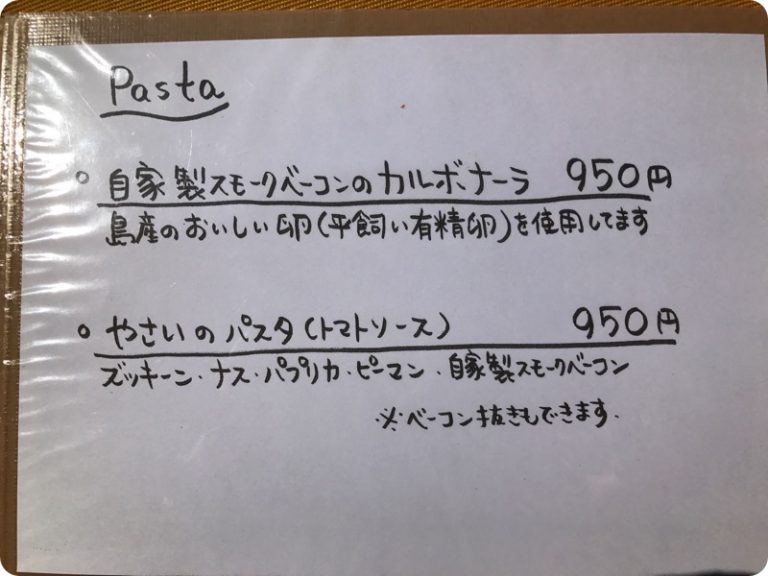 Pasta
○ 自家製スモークベーコンのカルボナーラ 950円
島産のおいしい卵(平飼い有精卵)を使用してます
○ やさいのパスタ(トマトソース) 950円
ズッキーン・ナス・パプリカ・ピーマン・自家製スモークベーコン
※ベーコン抜きもできます.